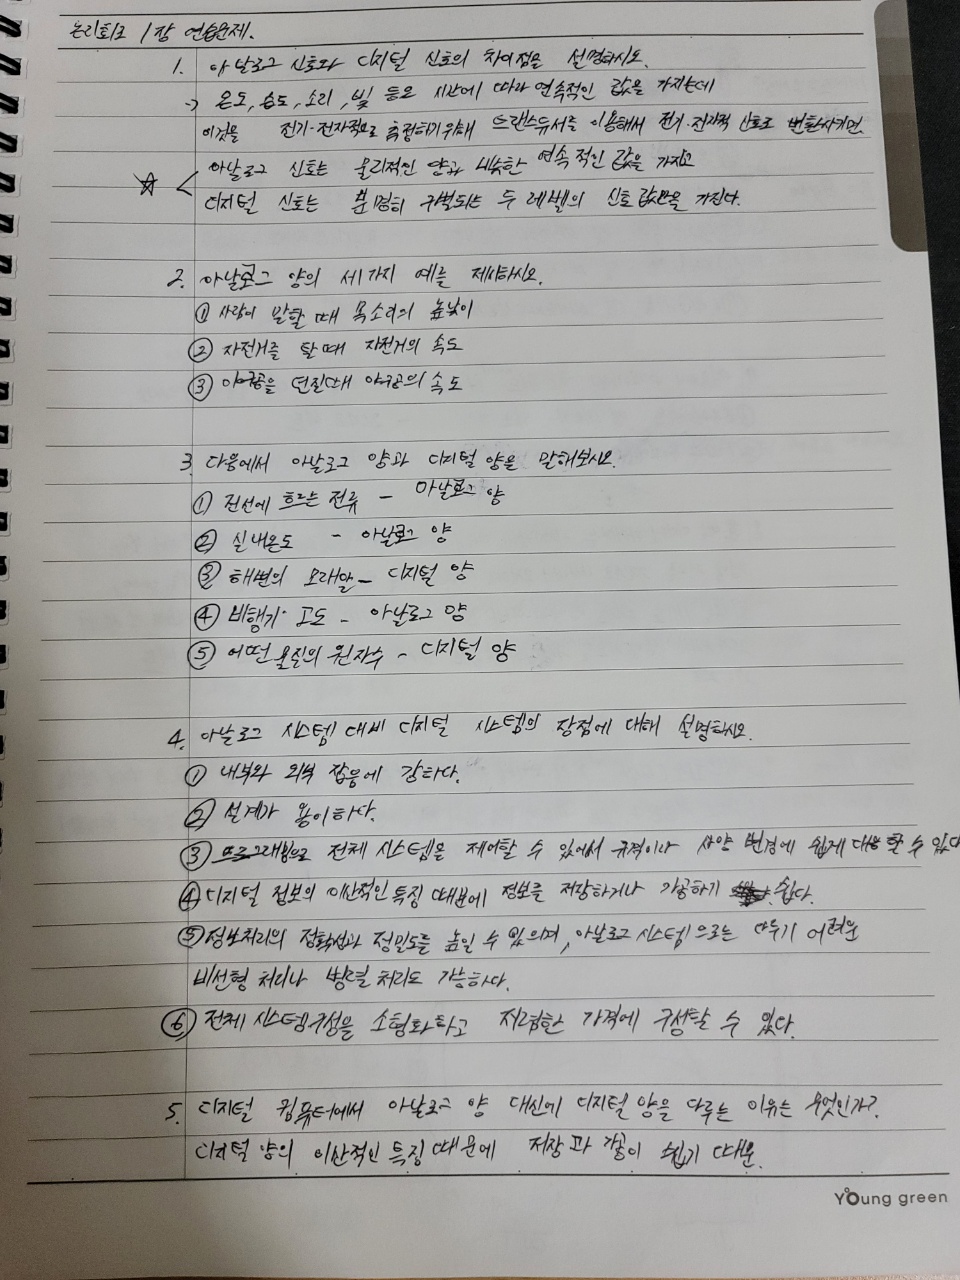 논리회로 1장 연습문제.
1. 아날로그 신호와 디지털 신호의 차이점을 설명하시오.
→ 온도, 습도, 소리, 빛 등은 시간에 따라 연속적인 값을 가지는데
이것을 전기·전자적으로 측정하기 위해 트랜스듀서를 이용해서 전기·전자적 신호로 변환시키면
☆ < 아날로그 신호는 물리적인 양과 비슷한 연속적인 값을 가지고
디지털 신호는 분명히 구별되는 두 레벨의 신호값만을 가진다.
2. 아날로그 양의 세가지 예를 제시하시오.
① 사람이 말할 때 목소리의 높낮이
② 자전거를 탈 때 자전거의 속도
③ 야구공을 던질때 야구공의 속도
3. 다음에서 아날로그 양과 디지털 양을 말해보시오.
① 전선에 흐르는 전류 - 아날로그 양
② 실내온도 - 아날로그 양
③ 해변의 모래알 - 디지털 양
④ 비행기 고도 - 아날로그 양
⑤ 어떤 물질의 원자수 - 디지털 양
4. 아날로그 시스템 대비 디지털 시스템의 장점에 대해 설명하시오.
① 내부와 외부 잡음에 강하다.
② 설계가 용이하다.
③ 프로그래밍으로 전체 시스템을 제어할 수 있어서 규격이나 사양 변경에 쉽게 대응할 수 있다
④ 디지털 정보의 이산적인 특징 때문에 정보를 저장하거나 가공하기 쉽다.
⑤ 정보처리의 정확성과 정밀도를 높일 수 있으며, 아날로그 시스템으로는 다루기 어려운
비선형 처리나 병렬 처리도 가능하다.
⑥ 전체 시스템 구성을 소형화하고 저렴한 가격에 구성할 수 있다.
5. 디지털 컴퓨터에서 아날로그 양 대신에 디지털 양을 다루는 이유는 무엇인가?
디지털 양의 이산적인 특징 때문에 저장과 가공이 쉽기 때문.
Young green